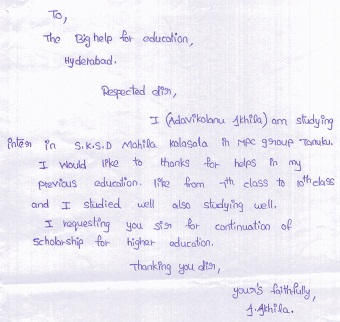 To,
The Big help for education,
Hyderabad.
Respected Sir,
I (Adavikolanu Akhila) am studying
inter in S.K.S.D Mahila kalasala in MPC group Tanuku.
I would like to thanks for helps in my
previous education. like from 7th class to 10th class
and I studied well also studying well.
I requesting you sir for continuation of
Scholarship for higher education.
Thanking you Sir,
your's faithfully,
A. Akhila.